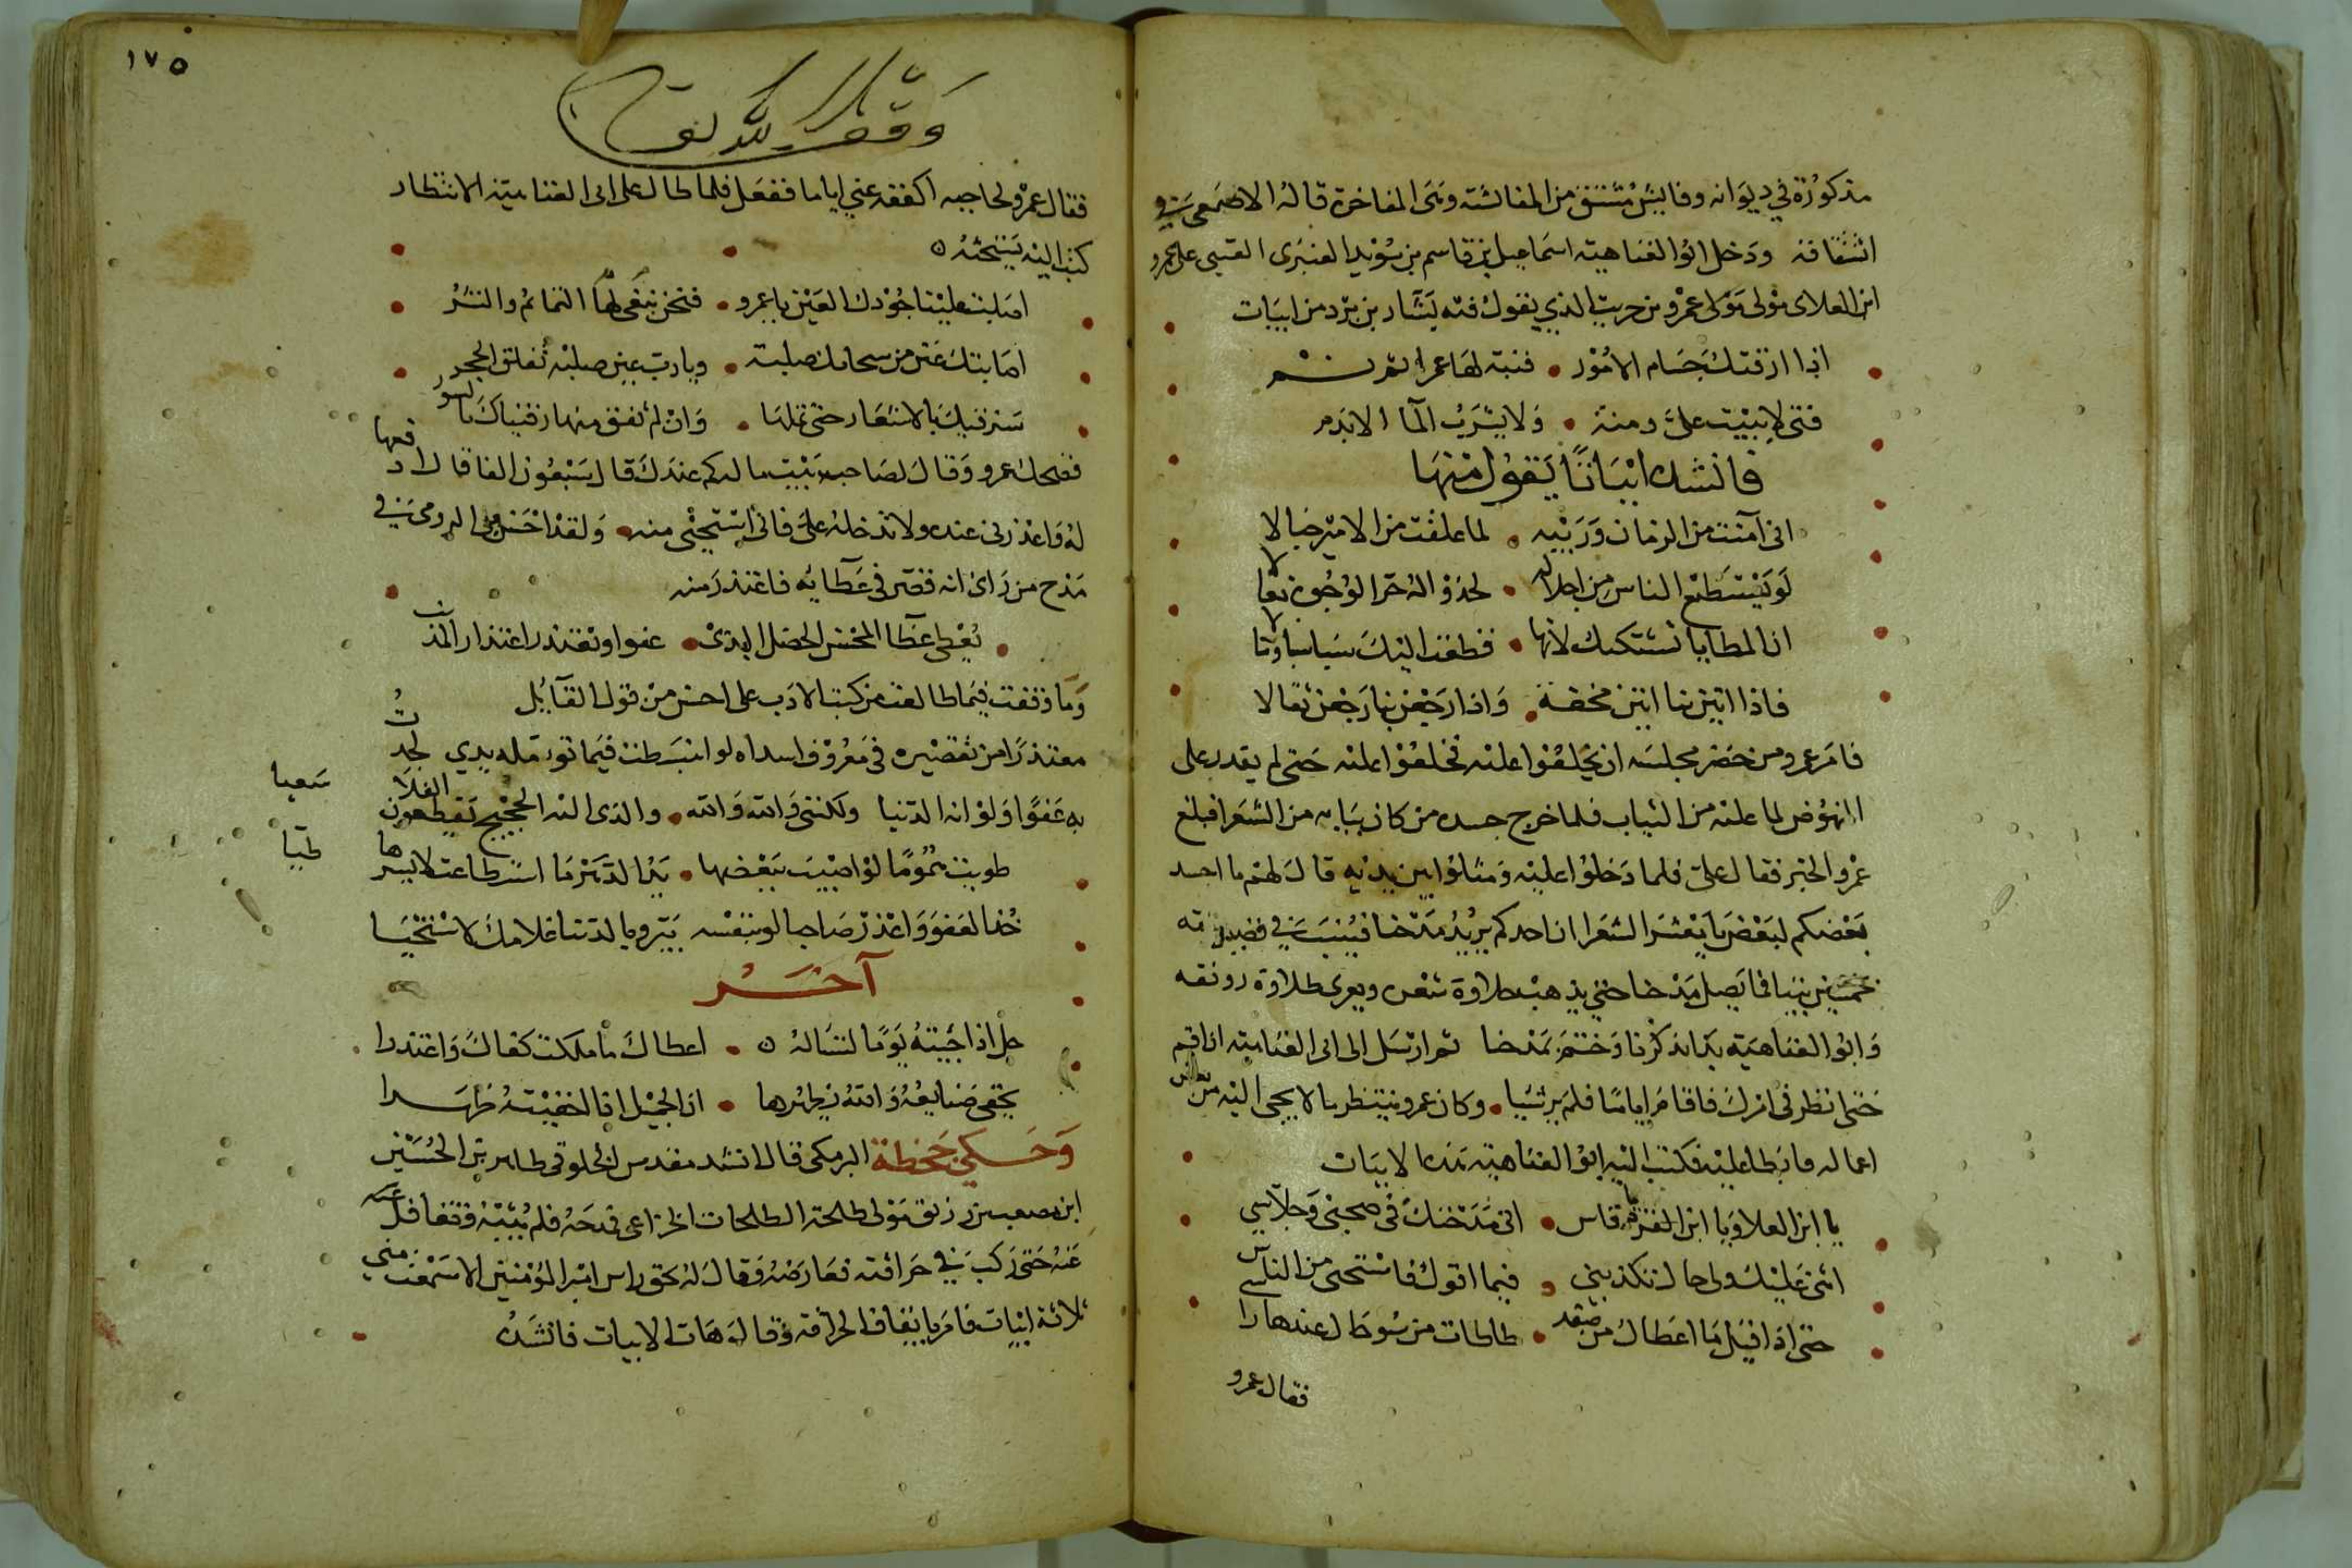 مذكورة في ديوانه وفايش مشتق من المفائشة وهي المفاخرة قاله الاصمعي في
اشتقاقه ودخل ابو العتاهية اسماعيل بن قاسم بن سويد العنبرى العتبى على عمرو
ابن العلاى مولى عمرو بن حريث الذي يقول فيه بشار بن برد من ابيات
اذا ارقتك جسام الامور • فنبه لها عمرا ثم نم
فتى لا يبيت على دمنة • ولا يشرب الما الا بدم
فانشده ابياتا يقول منها
انى آمنت من الزمان وريبه • لما علقت من الامير حبالا
لو يستطيع الناس من اجلاله • لحذوا له حر الوجوه نعالا
ان المطايا تشتكيك لانها • قطعت اليك سباسبا ورمالا
فاذا اتين بنا اتين مخفة • واذا رجعن بنا رجعن ثقالا
فامر عمرو من حضر مجلسه ان يخلعوا عليه فخلعوا عليه حتى لم يقدر على
النهوض لما عليه من الثياب فلما خرج حسده من كان ببابه من الشعرا فبلغ
عمرو الخبر فقال على فلما دخلوا عليه ومثلوا بين يديه قال لهم ما احسد
بعضكم لبعض يا معشر الشعرا ان احدكم يريد مدحنا فينسب في قصيدته
خمسين بيتا فما يصل مدحنا حتى يذهب حلاوة شعره ويعرى طلاوة رونقه
وابو العتاهية بدا بذكرنا وختم بمدحنا ثم ارسل الى ابى العتاهية ان اقم
حتى انظر في امرك فاقام اياما فلم ير شيا • وكان عمرو ينتظر مالا يجى اليه من بعض
اعماله فابطا عليه فكتب اليه ابو العتاهية بهذه الابيات
يا ابن العلا ويا ابن القرم مرداس • انى مدحتك في صحبى وجلاسي
اثنى عليك ولى حال تكذبني • فيما اقول فاستحى من الناس
حتى اذا قيل ما اعطاك من صفد • طاطات من سو حال عندها راسى
فقال عمرو
١٧٥
وقف لله تعالى
فقال عمرو لحاجبه اكففه عني اياما ففعل فلما طال على ابى العتاهية الانتظار
كتب اليه يستحثه
اصابت علينا جودك العين يا عمرو • فنحن نبغى لها التمائم والنشر
اصابتك عين من سحائك صلبة • ويا رب عين صلبة تفلق الحجر
سنرقيك بالاشعار حتى تملها • وان لم تفق منها رقيناك بالسور
فضحك عمرو وقال لصاحب بيت ماله كم عندك قال سبعون الفا قال ادفعها
له واعذرنى عنده ولا تدخله على فانى استحيى منه • ولقد احسن ابن الرومى في
مدح من راى انه قصر في عطائه فاعتذر منه
يعطى عطا المحسن الخضل الندى • عفوا ويعتذر اعتذار المذنب
وما وقفت فيما طالعت من كتب الادب على احسن من قول القائل
معتذرا من تقصيره في معروف اسداه لو انبسطت فيما تؤمله يدي لجدت
به عفوا ولو انه الدنيا ولكننى والله والله • والذى اليه الحجيج تقطعون الفلا سعيا
طويت هموما لو اصيب ببعضها • بذا الدهر ما اسطاعت لايسرها طيا
خذ العفو واعذر صاحبا لو بنفسه يبرو بالدنيا غلامك لاستحيا
آخر
حل اذا جيته يوما لتساله • اعطاك ما ملكت كفاك واعتذرا
يخفى صنايعه والله يظهرها • ان الجميل اذا اخفيته ظهرا
وحكى جحظة البرمكى قال انشد مقدس الخلوقى طاهر بن الحسين
ابن مصعب بن رزيق مولى طلحة الطلحات الخزاعى مدحه فلم يثبه وتغافل
عنه حتى ركب في حراقته فعارضه وقال له بحق راس امير المؤمنين الا سمعت مني
ثلاثة ابيات فامر بايقاف الحراقة وقال هات الابيات فانشده